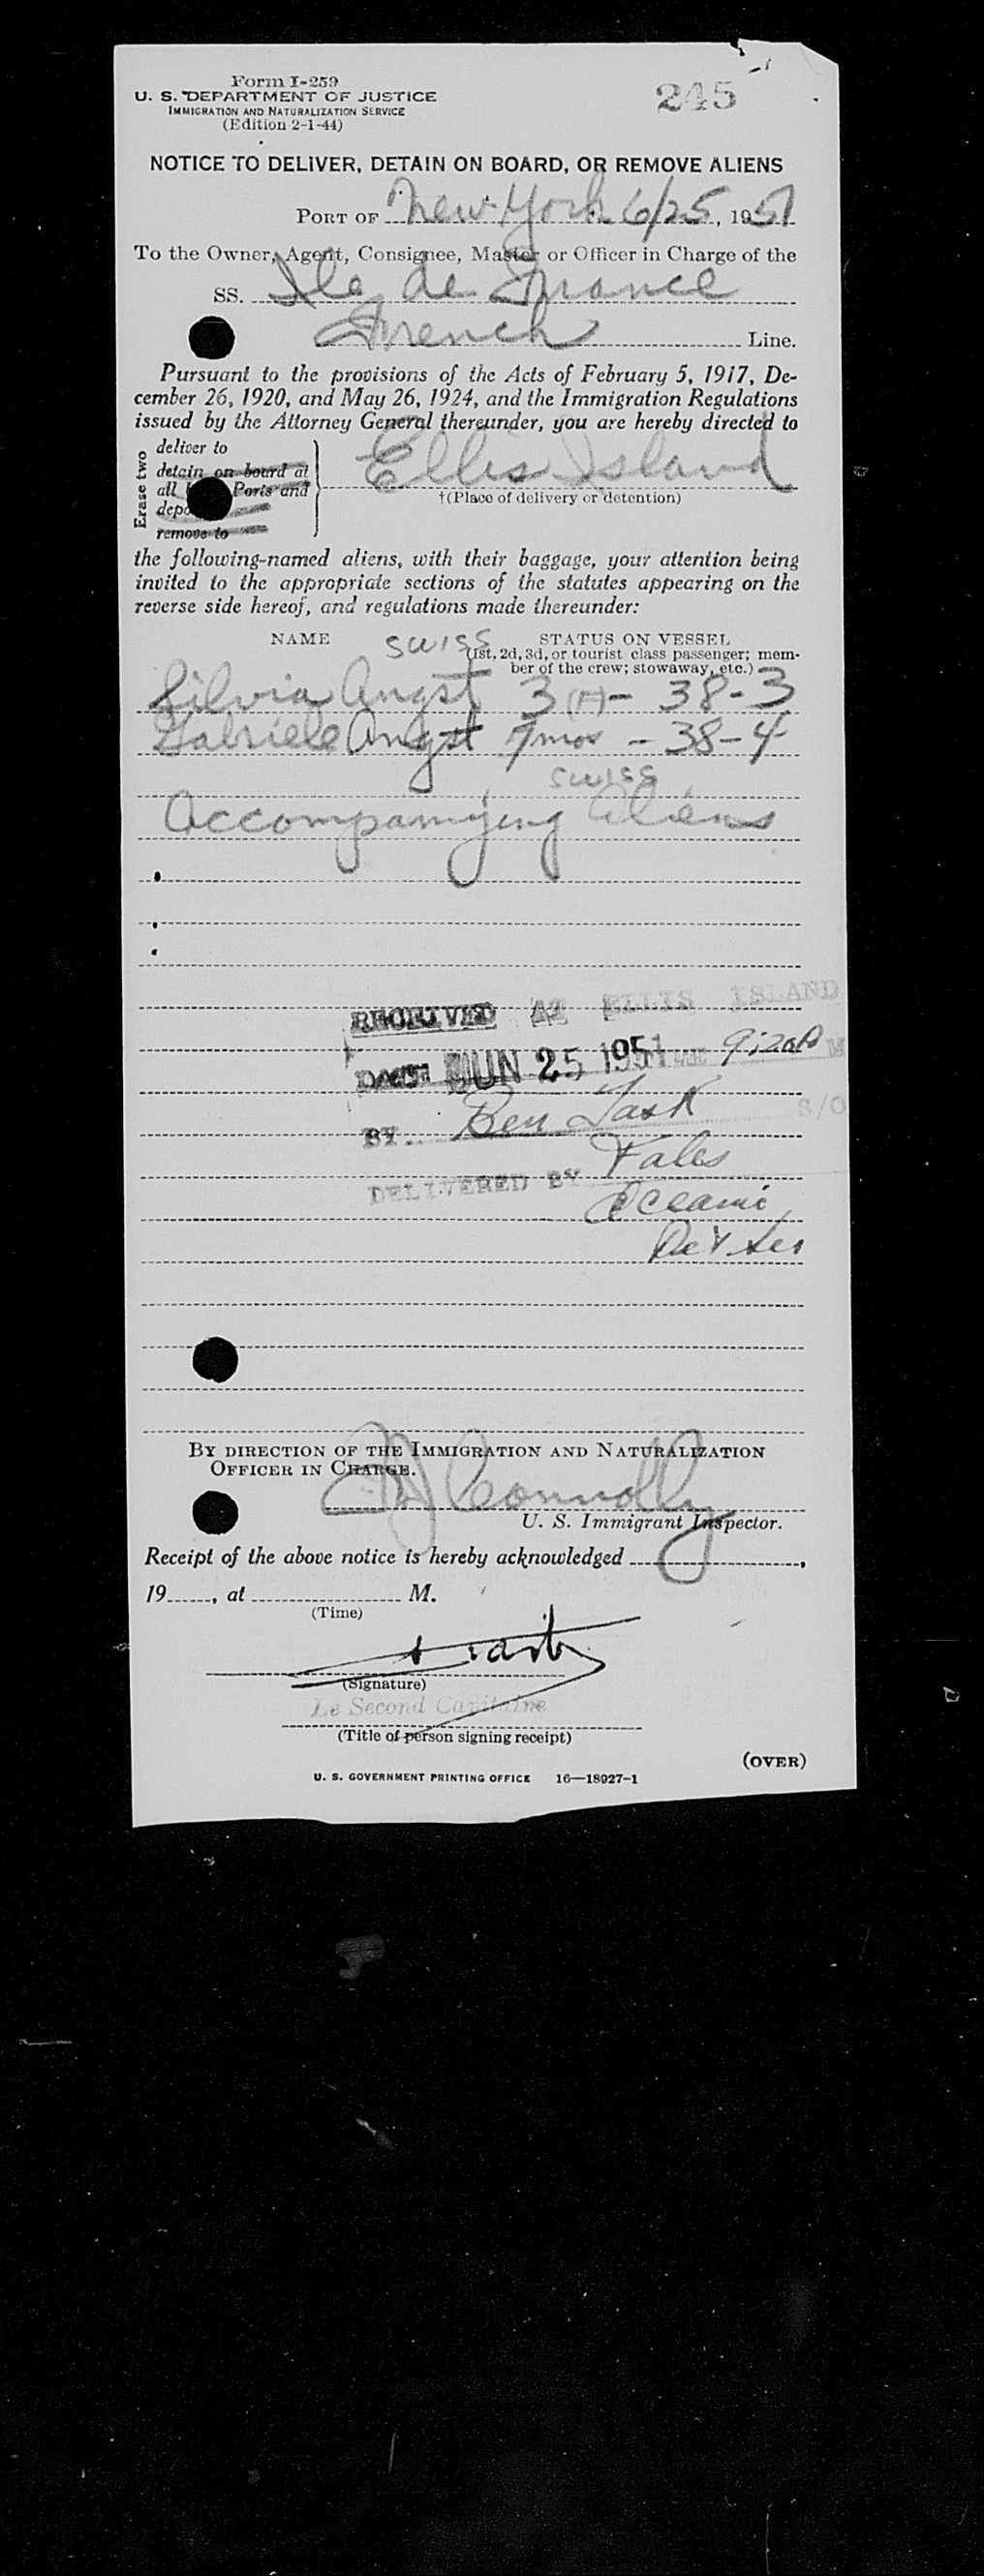 Form I-259
245
U. S. DEPARTMENT OF JUSTICE
IMMIGRATION AND NATURALIZATION SERVICE
(Edition 2-1-44)
NOTICE TO DELIVER, DETAIN ON BOARD, OR REMOVE ALIENS
PORT OF New York 6/25, 1951
To the Owner, Agent, Consignee, Master or Officer in Charge of the
SS. Ile de France
French Line.
Pursuant to the provisions of the Acts of February 5, 1917, De-
cember 26, 1920, and May 26, 1924, and the Immigration Regulations
issued by the Attorney General thereunder, you are hereby directed to
Erase two
deliver to
detain on board at
all Ports and
remove to
Ellis Island
†(Place of delivery or detention)
the following-named aliens, with their baggage, your attention being
invited to the appropriate sections of the statutes appearing on the
reverse side hereof, and regulations made thereunder:
NAME SWISS STATUS ON VESSEL
(1st, 2d, 3d, or tourist class passenger; mem-
ber of the crew; stowaway, etc.)
Silvia Angst 3 (H) - 38-3
Gabriele Angst 7 mos - 38-4
SWISS
Accompanying Aliens
RECEIVED AT ELLIS ISLAND
DATE JUN 25 1951 9:20 P M
BY Ben S/O
DELIVERED BY
BY DIRECTION OF THE IMMIGRATION AND NATURALIZATION
OFFICER IN CHARGE.
Connolly
U. S. Immigrant Inspector.
Receipt of the above notice is hereby acknowledged
19......, at M.
(Time)
(Signature)
Le Second Capitaine
(Title of person signing receipt)
(OVER)
U. S. GOVERNMENT PRINTING OFFICE 16—18027-1